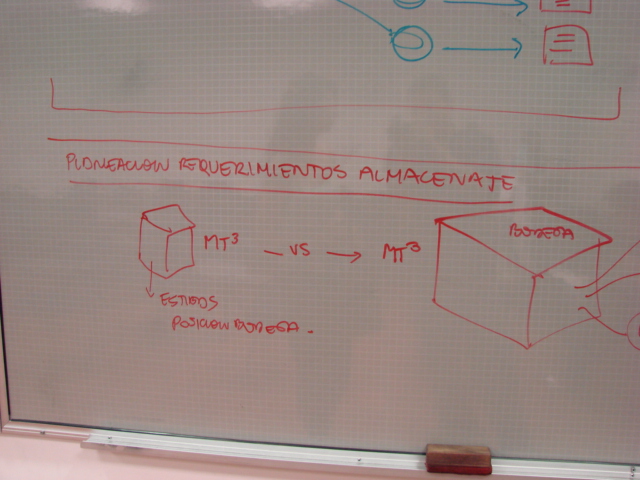 PLANEACION REQUERIMIENTOS ALMACENAJE
MT³ VS MT³
BODEGA
ESTIBAS
POSICION BODEGA.